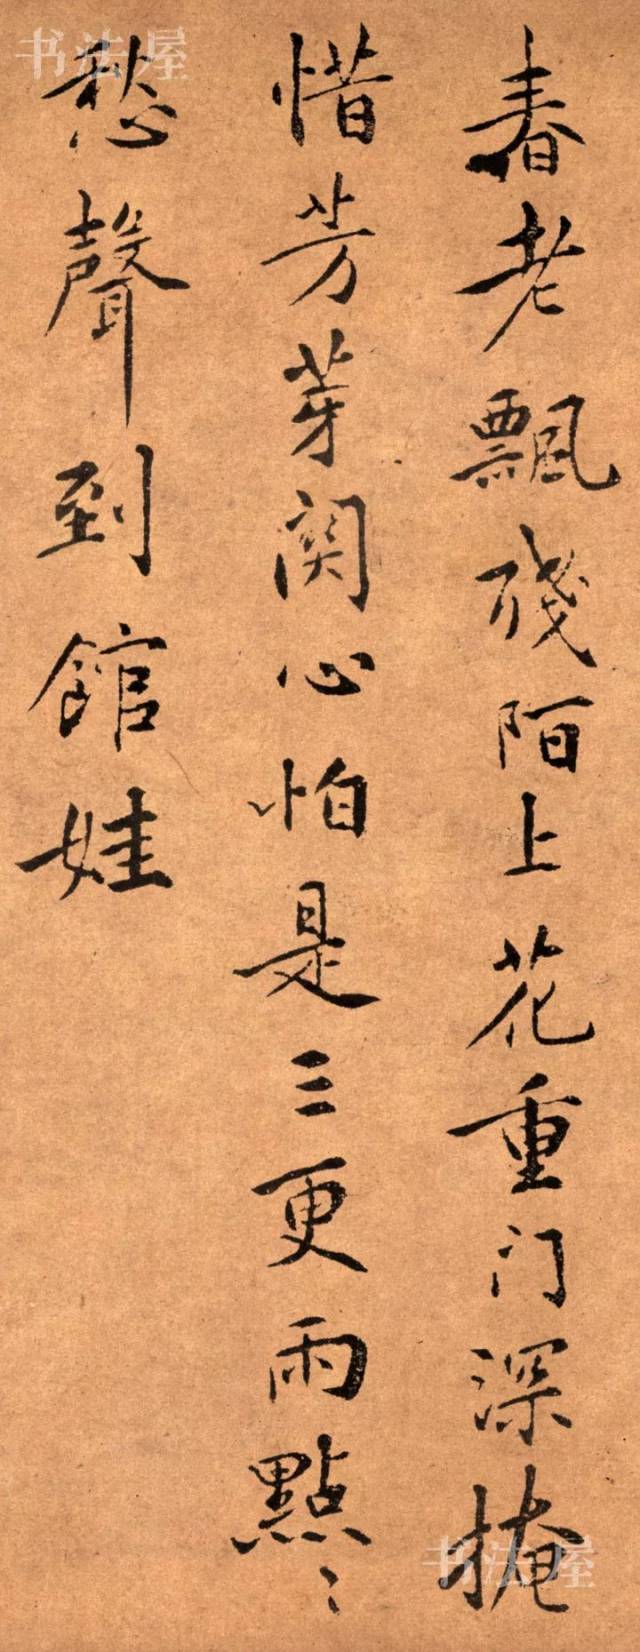 春老飄殘陌上花重门深掩
惜芳芽関心怕是三更雨點〻
愁聲到館娃
书法屋
书法屋